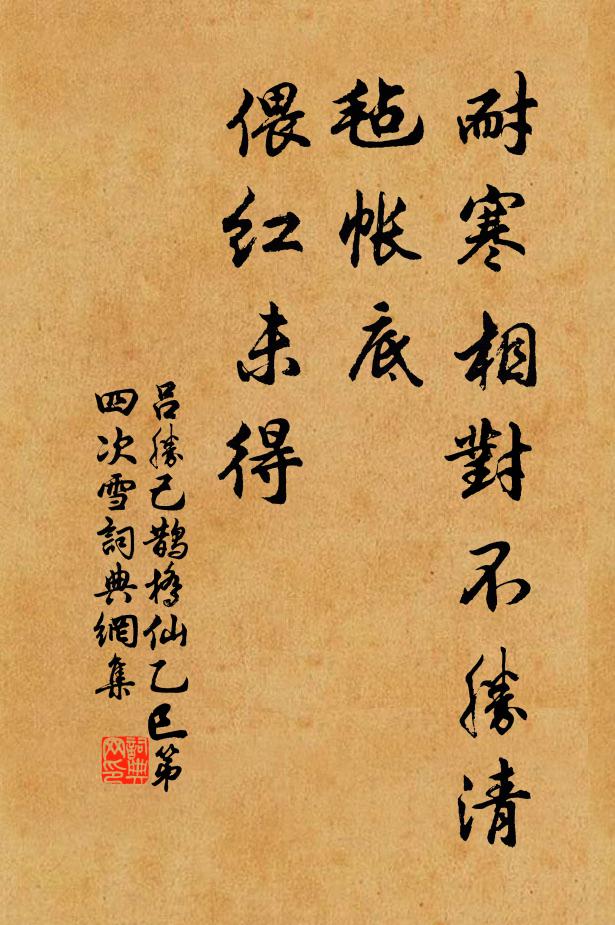 耐寒相對不勝清
毡帐底
偎红未得
吕勝己鹊橋仙乙巳第
四次雪詞典網集
詞典网印